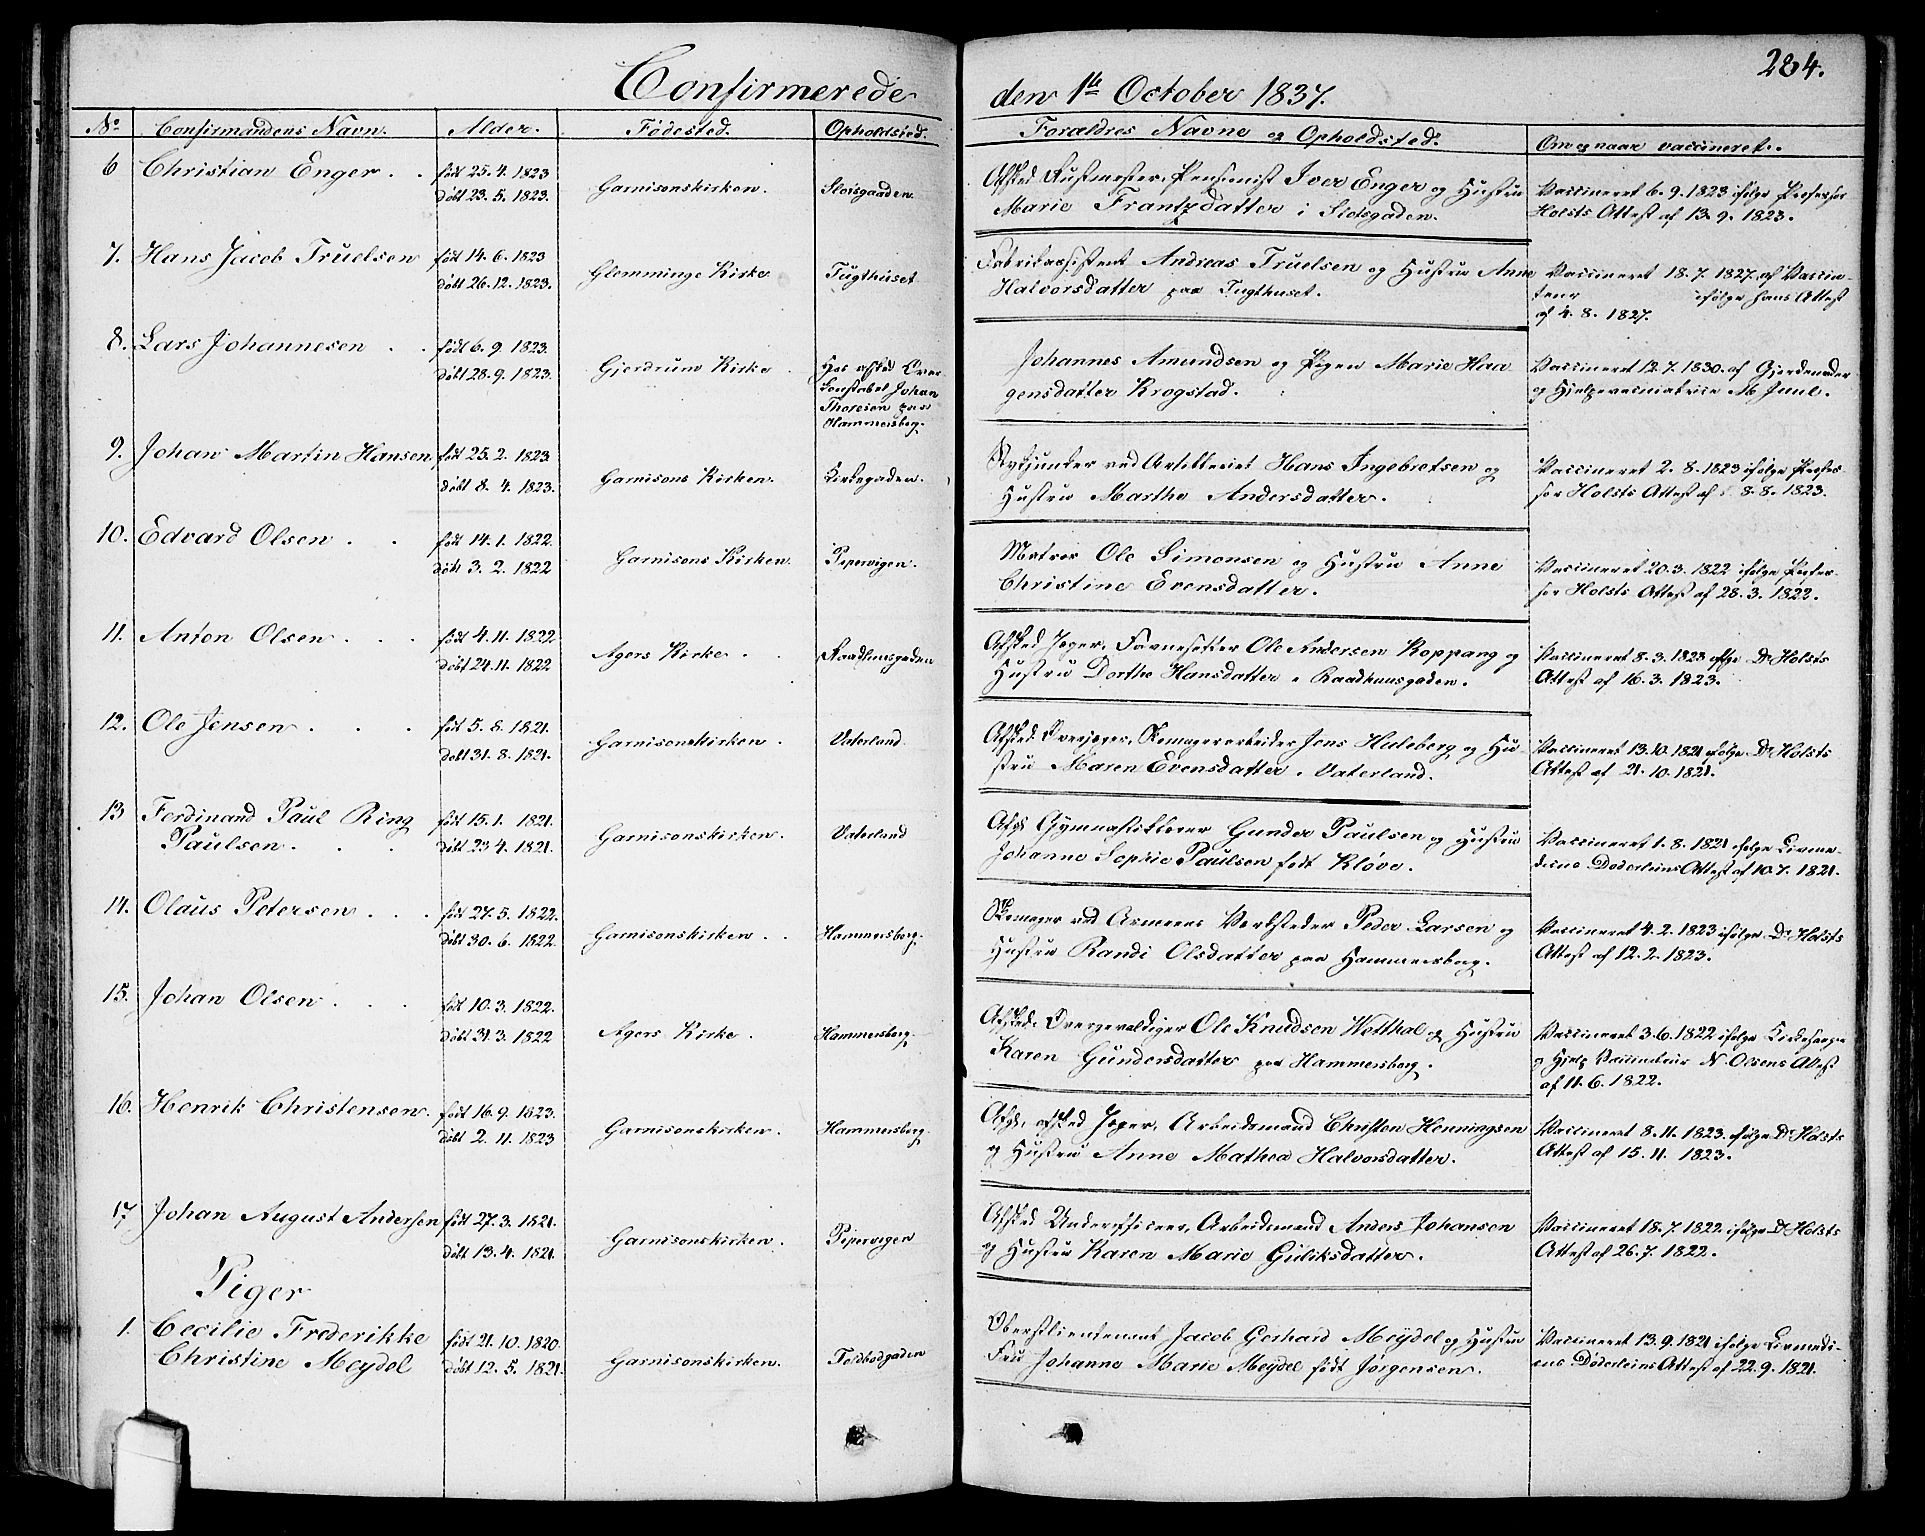 Confirmerede den 1te October 1837.
284.
No Confirmandens Navn. Alder. Fødested. Opholdsted. Forældres Navne og Opholdsted. Om og naar vaccineret.
6 Christian Enger . . født 25. 4. 1823
døbt 23. 5. 1823.
Garnisonskirken. Slotsgaden.
Afsked Rustmester, Pensionist Iver Enger og Hustru
Marie Frantzdatter i Slotsgaden.
Vaccineret 6. 9. 1823 ifølge Professor
Holsts Attest af 13. 9. 1823.
7. Hans Jacob Truelsen født 14. 6. 1823
døbt 26. 12. 1823.
Glemminge Kirke Tugthuset
Andreas Truelsen og Hustru Anne
Halvorsdatter paa Tugthuset.
Vaccineret 18. 7. 1827. af Vaccin-
ifølge hans Attest
af 4. 8. 1827.
8. Lars Johannesen . . født 6. 9. 1823.
døbt 28. 9. 1823.
Gjerdrum Kirke
Hos afsked Over
Konstabel Johan
Thoresen paa
Hammersborg.
Johannes Amundsen og Pigen Marie Haa
gensdatter Krogstad.
Vaccineret 12. 7. 1830. af Gjordemoder
og Hjelpevaccinatrice M Juul.
9. Johan Martin Hansen født 25. 2. 1823
døbt 8. 4. 1823.
Garnisons Kirken. Kirkegaden.
ved Artilleriet Hans Ingebretsen og
Hustru Marthe Andersdatter.
Vaccineret 2. 8. 1823 ifølge Profes-
sor Holsts Attest af 8. 8. 1823.
10. Edvard Olsen . . født 14. 1. 1822.
døbt 3. 2. 1822
Garnisons Kirken. Pipervigen.
Ole Simonsen og Hustru Anne
Christine Evensdatter.
Vaccineret 20. 3. 1822 ifølge Profes-
sor Holsts Attest af 28. 3. 1822.
11. Anton Olsen . . . født 4. 11. 1822
døbt 24. 11. 1822
Agers Kirke . . Raadhuusgaden
Afsked Jæger, Ole Andersen Koppang og
Hustru Dorthe Hansdatter i Raadhuusgaden.
Vaccineret 8. 3. 1823 ifølge Dr Holsts
Attest af 16. 3. 1823.
12. Ole Jensen . . . født 5. 8. 1821.
døbt 31. 8. 1821.
Garnisonskirken . Vaterland.
Afsked Overjæger, Skomagerarbeider Jens Huleberg og Hu
stru Maren Evensdatter i Vaterland.
Vaccineret 13. 10. 1821 ifølge Dr Holsts
Attest af 21. 10. 1821.
13 Ferdinand Paul Ring
Paulsen . . .
født 15. 1. 1821.
døbt 23 4. 1821.
Garnisonskirken. Vaterland
Gunder Paulsen og Hustru
Johanne Sophie Paulsen født Kløve.
Vaccineret 1. 8. 1821 ifølge Livme-
dicus Døderleins Attest af 10. 7. 1821.
14. Olaus Petersen . . . født 27. 5. 1822.
døbt 30. 6. 1822.
Garnisonskirken . . Hammersborg.
Skomager ved Armeens Værksteder Peder Larsen og
Hustru Randi Olsdatter paa Hammersborg.
Vaccineret 4. 2. 1823 ifølge Dr Holsts
Attest af 12. 2. 1823.
15. Johan Olsen . . . født 10. 3. 1822.
døbt 31. 3. 1822
Agers Kirke . Hammersborg.
Afsked. Overgevaldiger Ole Knudsen Wetthal og Hustru
Karen Gundersdatter paa Hammersborg.
Vaccineret 3. 6. 1822 ifølge Kirkesanger
og Hjelp Vaccinateur N. Olsens Attest
af 11. 6. 1822.
16. Henrik Christensen. født 16. 9. 1823.
døbt 2. 11. 1823
Garnisonskirken. Hammersborg.
Afgl. afsked Jæger, Arbeidsmand Christen Henningsen
og Hustru Anne Mathea Halvorsdatter.
Vaccineret 8. 11. 1823. ifølge Dr Holsts
Attest af 15. 11. 1823.
17 Johan August Andersen født 27. 3. 1821.
døbt 13. 4. 1821.
Garnisonskirken. Pipervigen
Afsked Underofficeer, Arbeidsmand Anders Johansen
og Hustru Karen Marie Guliksdatter.
Vaccineret 18. 7. 1822. ifølge Dr Holsts
Attest af 26. 7. 1822.
Piger
1. Cecilie Frederikke
Christine Meydel
født 21. 10. 1820.
døbt 12. 5. 1821.
Garnisonskirken. Toldbodgaden
Oberstlieutenant Jacob Gerhard Meydel og Hustru
Fru Johanne Marie Meydel født Jørgensen.
Vaccineret 13. 9. 1821 ifølge Livmedi-
cus Døderleins Attest af 22. 9. 1821.